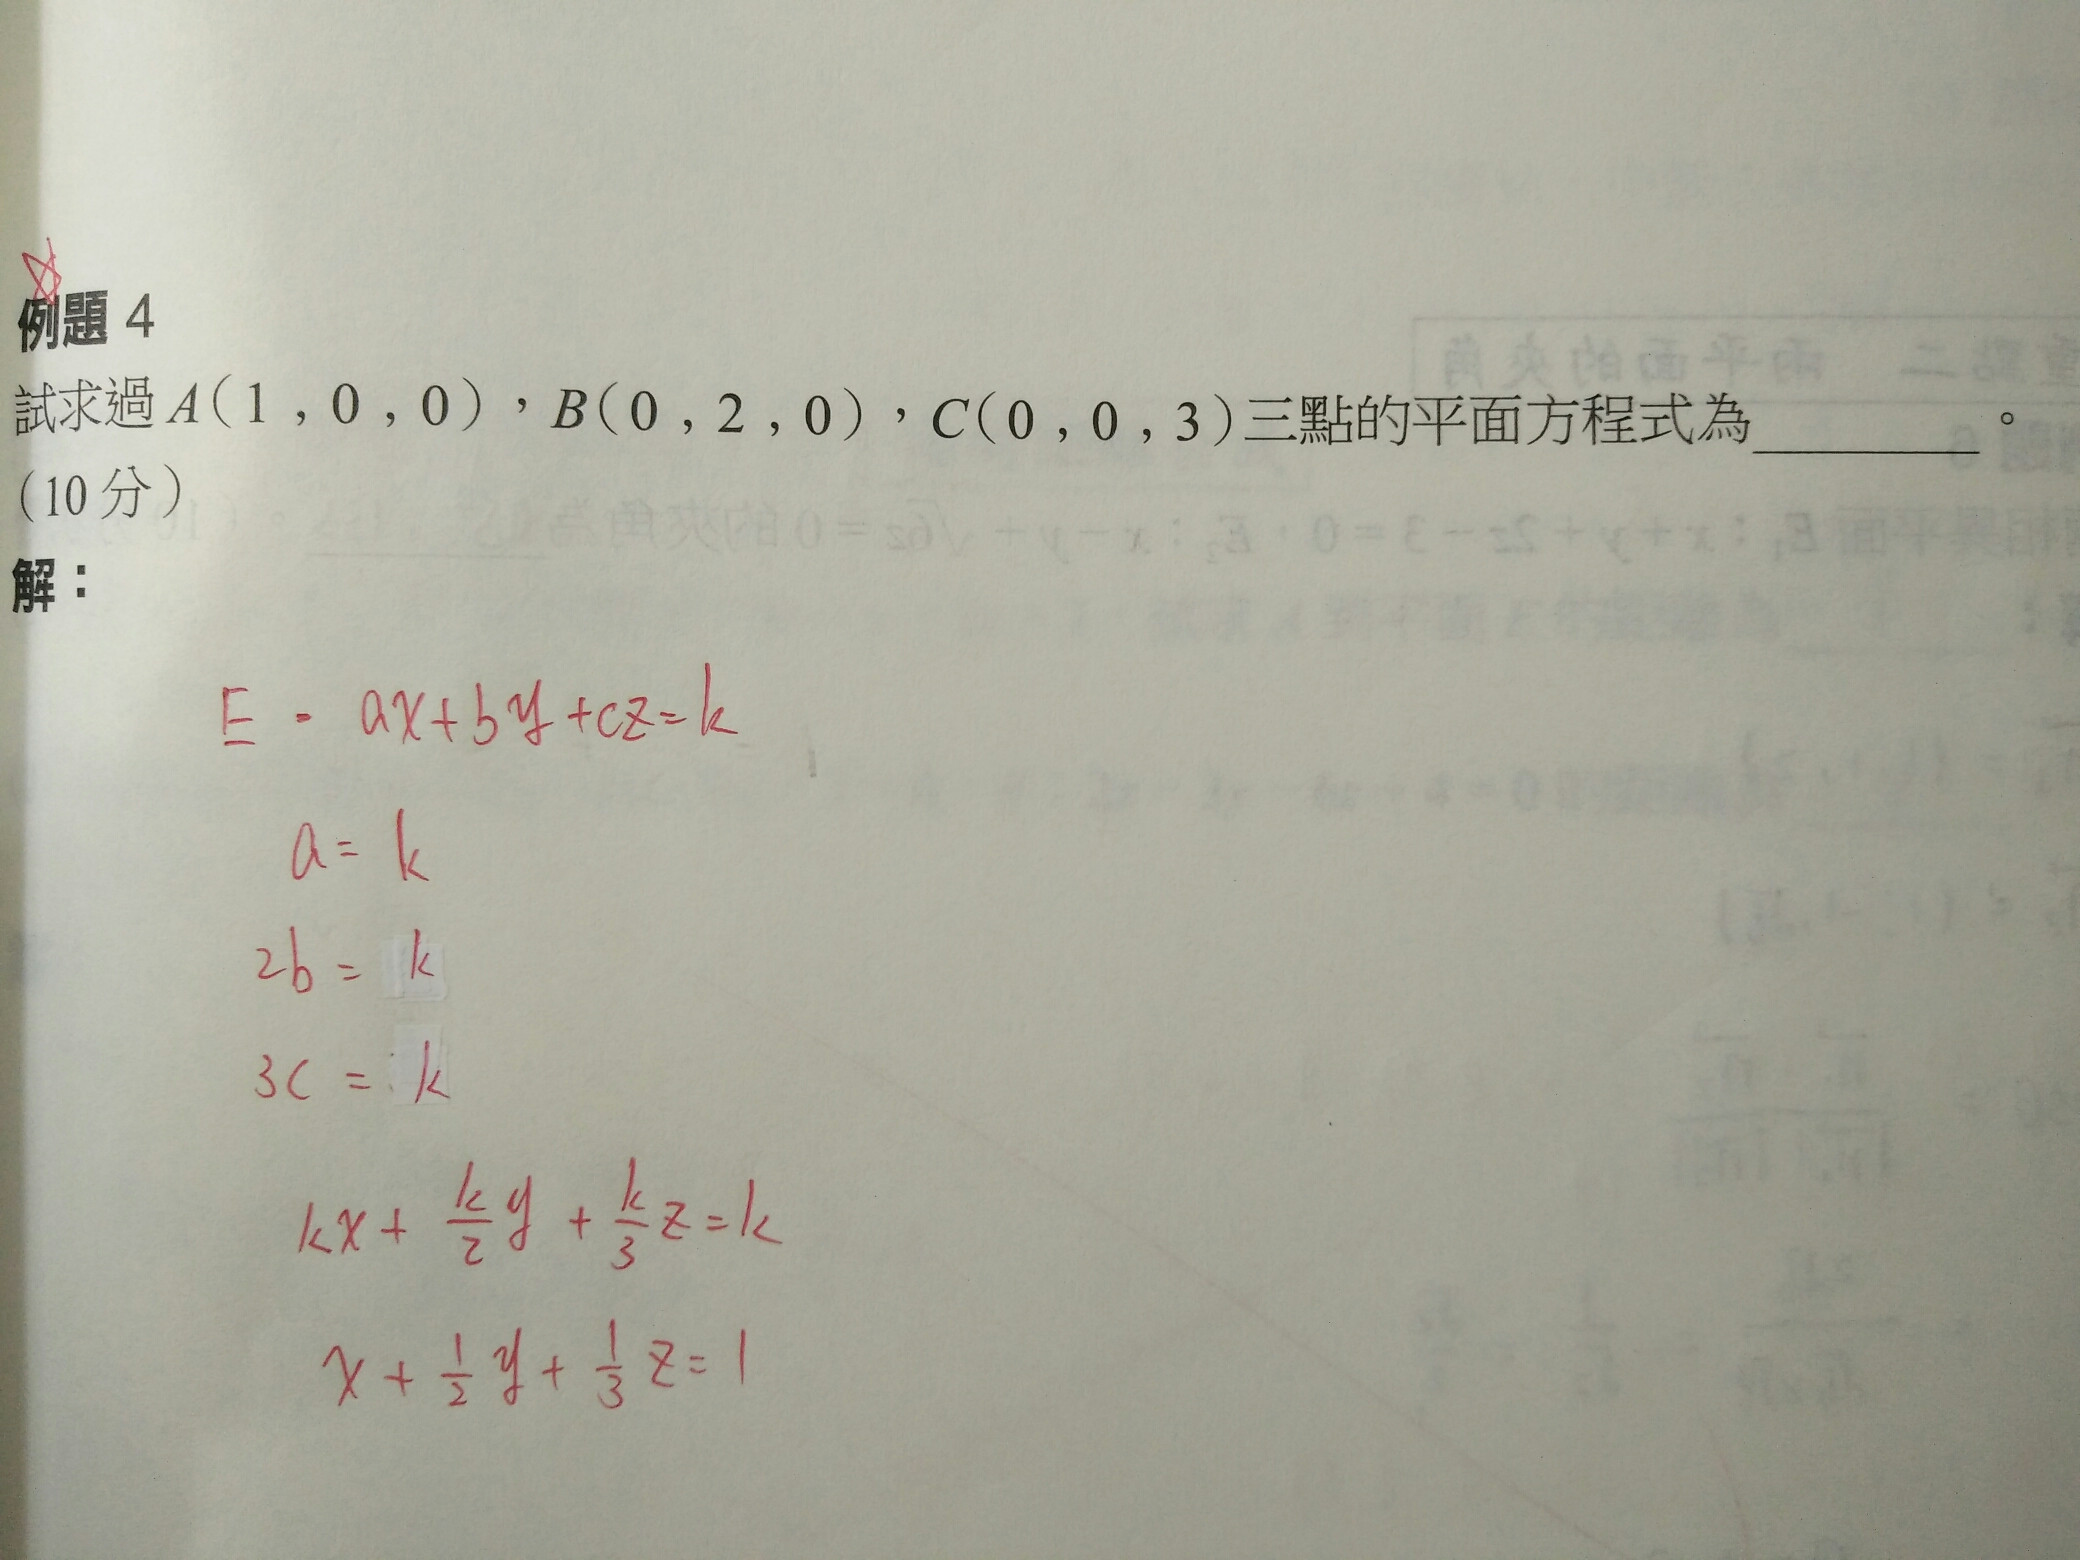 例題 4
試求過 A(1 , 0 , 0),B(0 , 2 , 0),C(0 , 0 , 3)三點的平面方程式為________。
(10 分)
解:
E : ax+by+cz=k
a= k
2b = k
3c = k
kx + k/2 y + k/3 z = k
x + 1/2 y + 1/3 z = 1